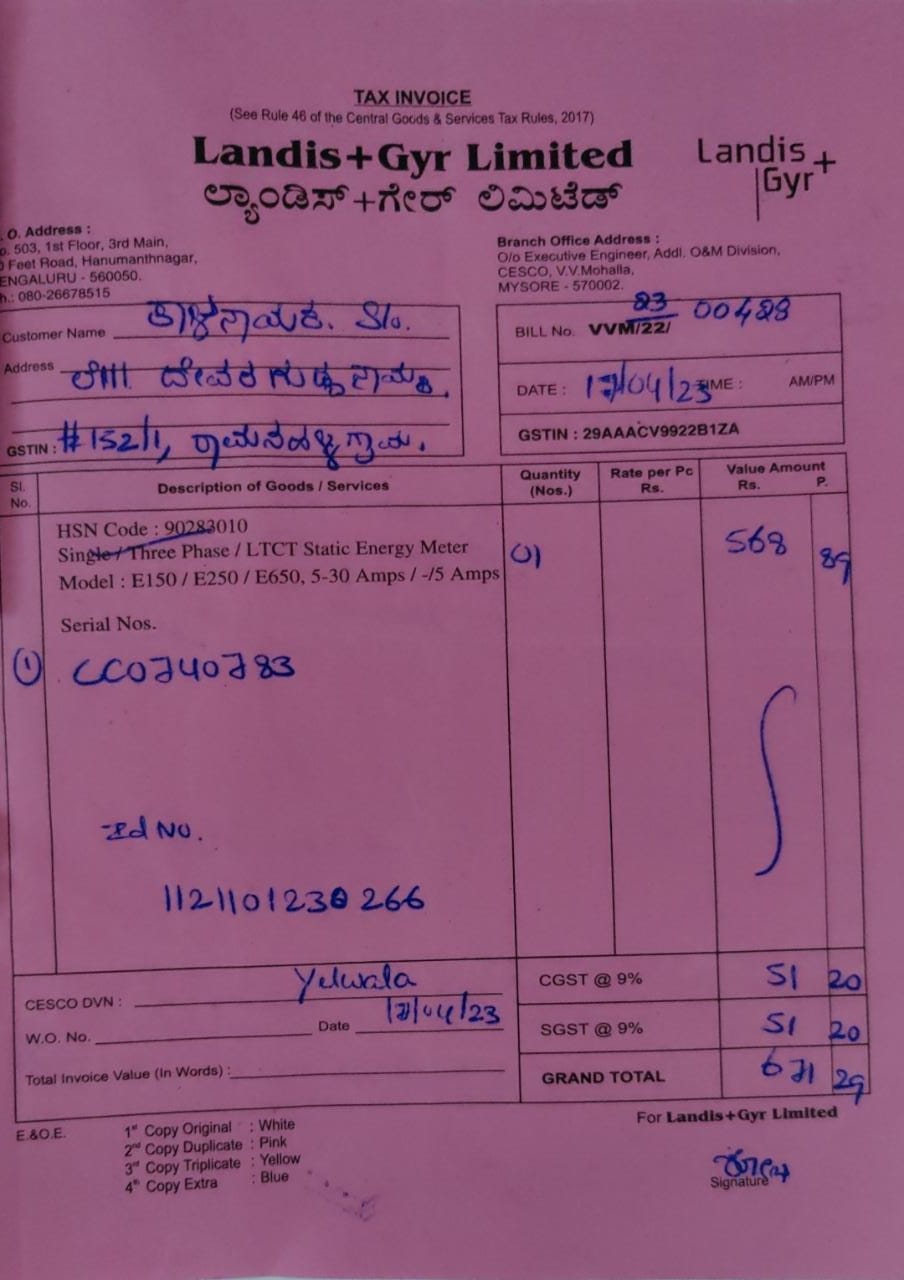 TAX INVOICE
(See Rule 46 of the Central Goods & Services Tax Rules, 2017)
Landis+Gyr Limited
Landis+
Gyr
ಲ್ಯಾಂಡಿಸ್+ಗೇರ್ ಲಿಮಿಟೆಡ್
. O. Address :
o. 503, 1st Floor, 3rd Main,
Feet Road, Hanumanthnagar,
ENGALURU - 560050.
h.: 080-26678515
Branch Office Address :
O/o Executive Engineer, Addl. O&M Division,
CESCO, V.V.Mohalla,
MYSORE - 570002.
Customer Name ಕಾಳನಾಯಕ. S/o.
Address ಲೇ||| ದೇವರಗುಡ್ಡನಾಯಕ.
GSTIN : #152/1,
BILL No. VVM/22/ 23 00428
DATE : 17/04/23 TIME : AM/PM
GSTIN : 29AAACV9922B1ZA
Sl. No. Description of Goods / Services Quantity (Nos.) Rate per Pc Rs. Value Amount Rs. P.
HSN Code : 90283010
Single / Three Phase / LTCT Static Energy Meter 01 568 89
Model : E150 / E250 / E650, 5-30 Amps / -/5 Amps
Serial Nos.
① CC0740783
Id No.
1121101230266
CESCO DVN : Yelwala
W.O. No. Date 17/04/23
Total Invoice Value (In Words) :
CGST @ 9% 51 20
SGST @ 9% 51 20
GRAND TOTAL 671 29
For Landis+Gyr Limited
E.&O.E.
1st Copy Original : White
2nd Copy Duplicate : Pink
3rd Copy Triplicate : Yellow
4th Copy Extra : Blue
Signature